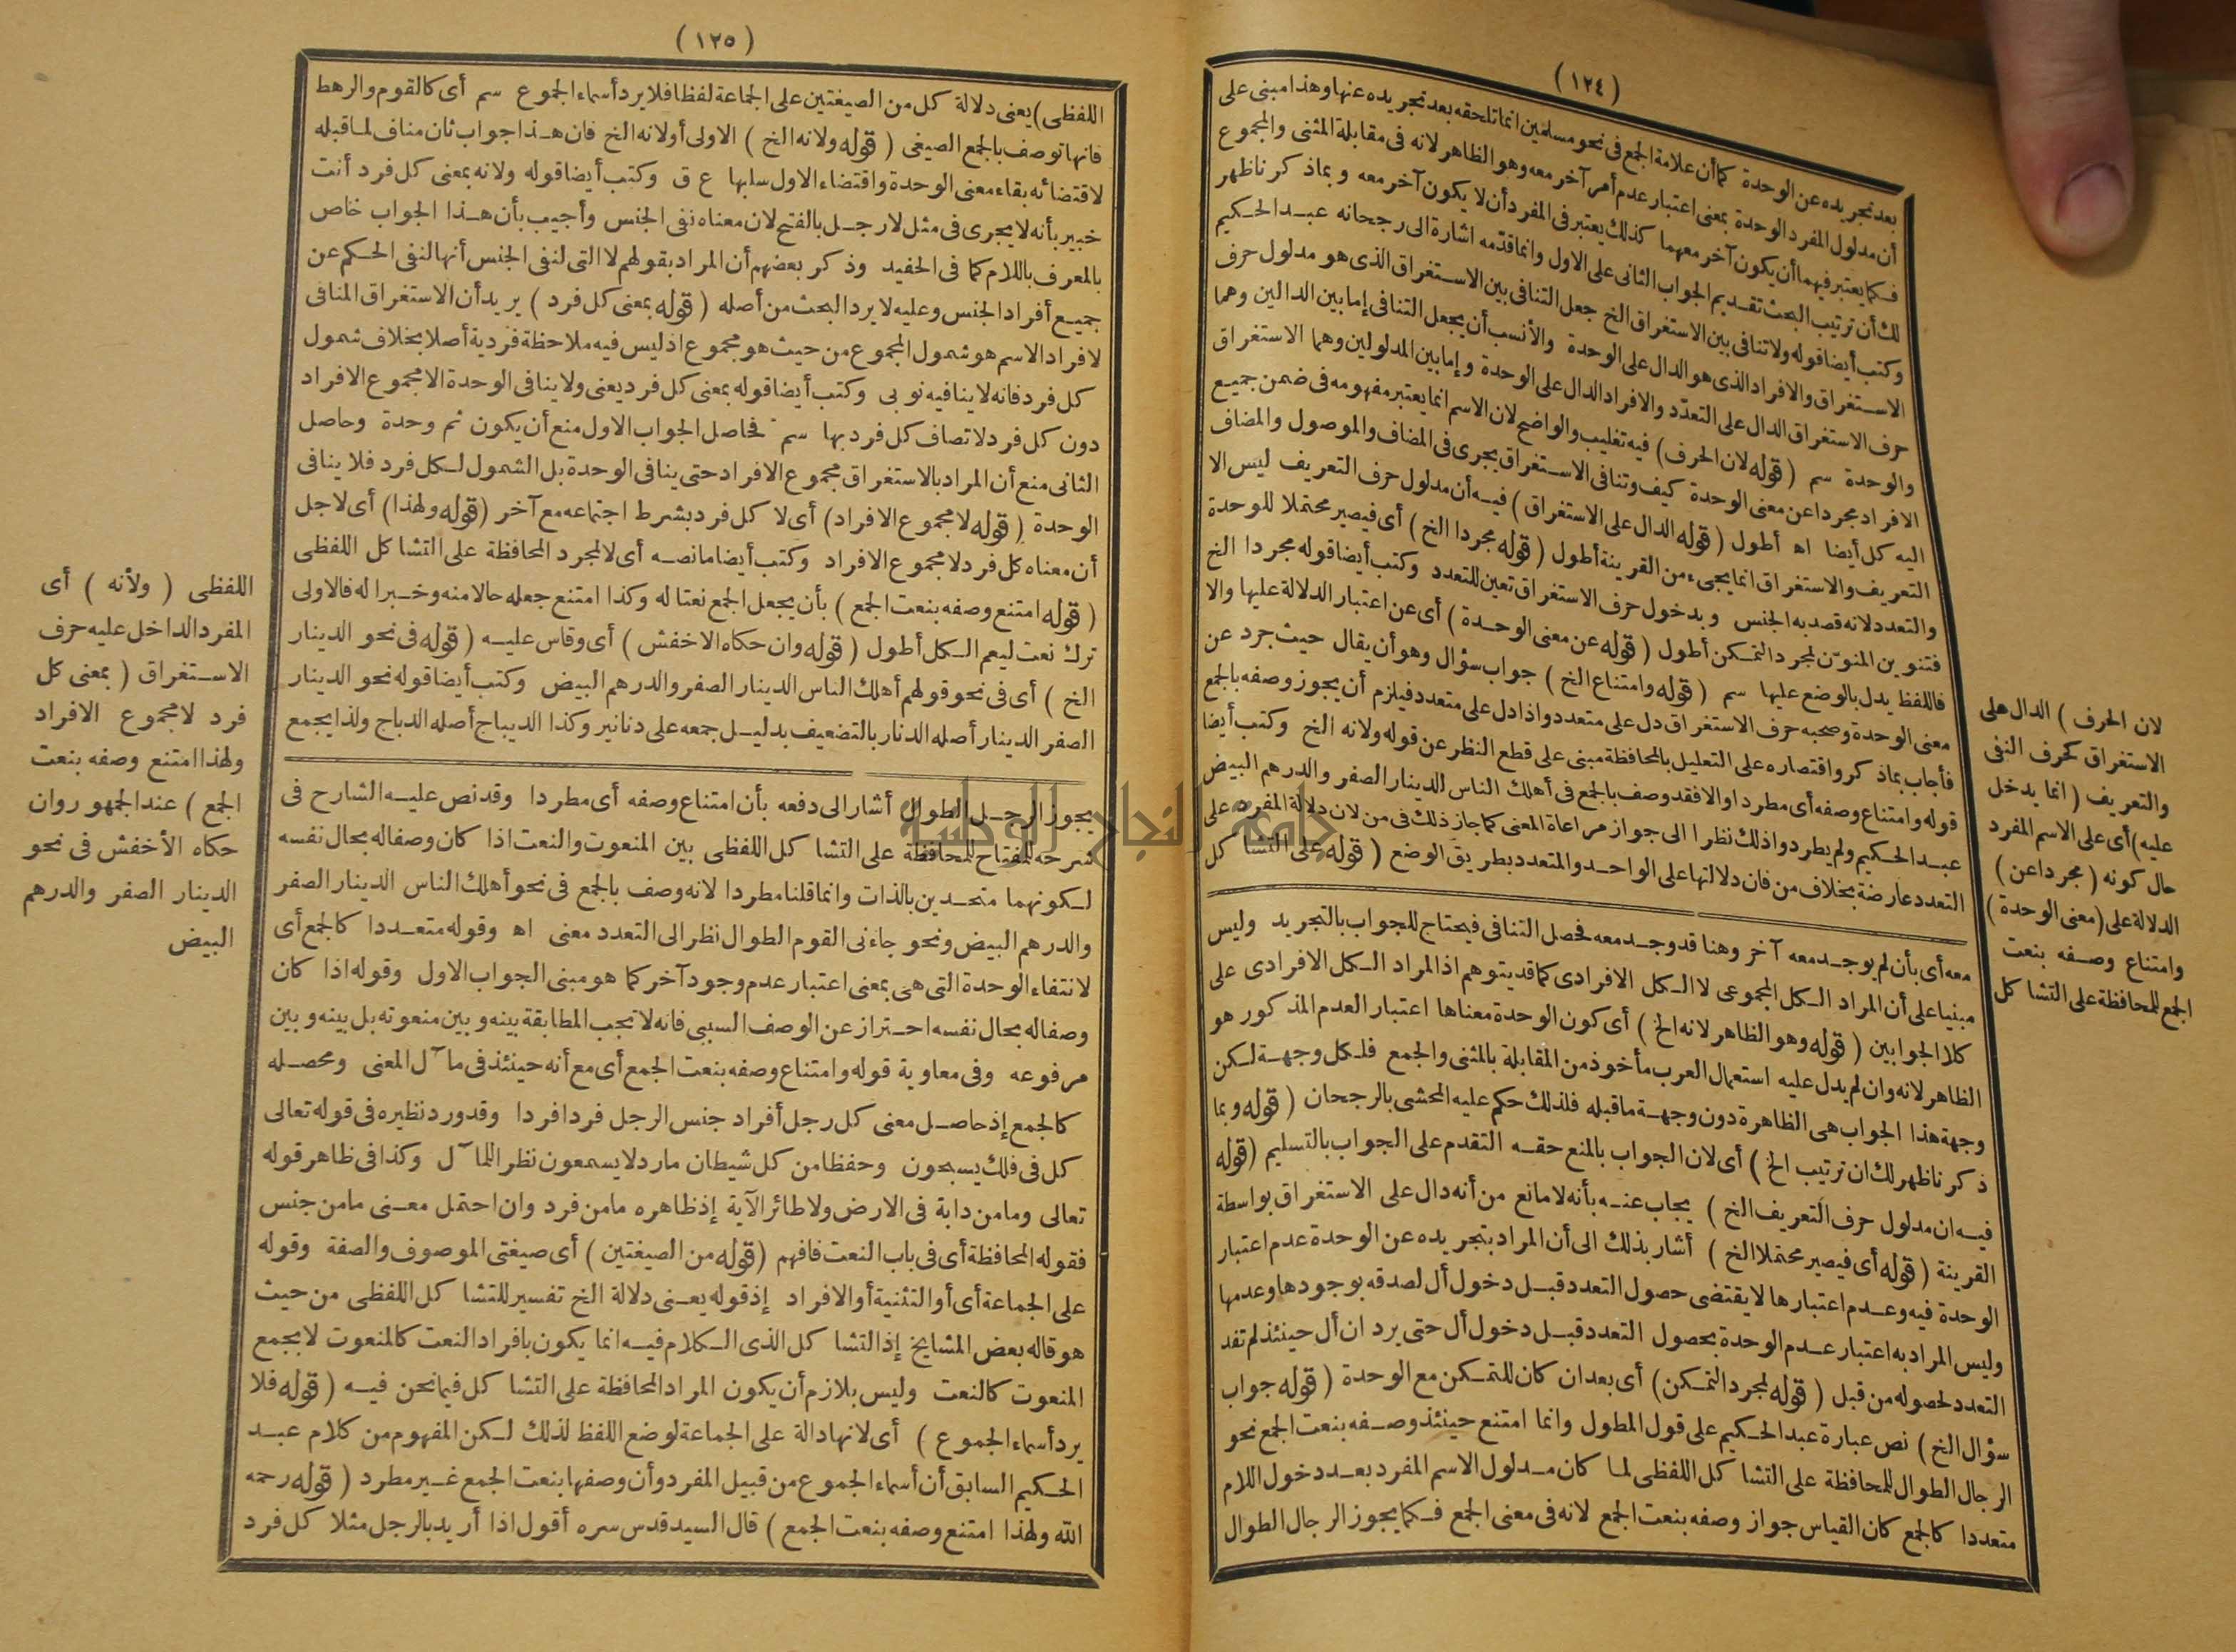 (١٢٤)
بعد تجريده عن الوحدة كما أن علامة الجمع فى نحو مسلمين انما تلحقه بعد تجريده عنها وهذا مبنى على
أن مدلول المفرد الوحدة بمعنى اعتبار عدم أمر آخر معه وهو الظاهر لانه فى مقابلة المثنى والمجموع
فكما يعتبر فيهما أن يكون آخر معهما كذلك يعتبر فى المفرد أن لا يكون آخر معه وبما ذكرنا ظهر
لك أن ترتيب البحث تقديم الجواب الثانى على الاول وانما قدّمه اشارة الى رجحانه عبد الحكيم
وكتب أيضا قوله ولا تنافى بين الاستغراق الخ جعل التنافى بين الاستغراق الذى هو مدلول حرف
الاستغراق والافراد الذى هو الدال على الوحدة والأنسب أن يجعل التنافى إما بين الدالين وهما
حرف الاستغراق الدال على التعدّد والافراد الدال على الوحدة وإما بين المدلولين وهما الاستغراق
والوحدة سم (قوله لان الحرف) فيه تغليب والواضح لان الاسم انما يعتبر مفهومه فى ضمن جميع
الافراد مجردا عن معنى الوحدة كيف وتنافى الاستغراق يجرى فى المضاف والموصول والمضاف
اليه كل أيضا اه أطول (قوله الدال على الاستغراق) فيه أن مدلول حرف التعريف ليس الا
التعريف والاستغراق انما يجىء من القرينة أطول (قوله مجردا الخ) أى فيصير محتملا للوحدة
والتعدد لانه قصد به الجنس وبدخول حرف الاستغراق تعين للتعدد وكتب أيضا قوله مجردا الخ
فتنوين المنوّن لمجرد التمكن أطول (قوله عن معنى الوحدة) أى عن اعتبار الدلالة عليها والا
فاللفظ يدل بالوضع عليها سم (قوله وامتناع الخ) جواب سؤال وهو أن يقال حيث جرد عن
معنى الوحدة وصحبه حرف الاستغراق دل على متعدد واذا دل على متعدد فيلزم أن يجوز وصفه بالجمع
فأجاب بماذكر واقتصاره على التعليل بالمحافظة مبنى على قطع النظر عن قوله ولانه الخ وكتب أيضا
قوله وامتناع وصفه أى مطردا والافقد وصف بالجمع فى أهلك الناس الدينار الصفر والدرهم البيض
عبد الحكيم ولم يطرد واذلك نظرا الى جواز مراعاة المعنى كما جاز ذلك فى من لان دلالة المفرد على
التعدد عارضة بخلاف من فان دلالتها على الواحد والمتعدد بطريق الوضع (قوله على التشاكل
معه أى بأن لم يوجد معه آخر وهنا قد وجد معه فحصل التنافى فيحتاج للجواب بالتجريد وليس
مبنيا على أن المراد الكل المجموعى لا الكل الافرادى كما قد يتوهم اذ المراد الكل الافرادى على
كلا الجوابين (قوله وهو الظاهر لانه الخ) أى كون الوحدة معناها اعتبار العدم المذكور هو
الظاهر لانه وان لم يدل عليه استعمال العرب مأخوذ من المقابلة بالمثنى والجمع فلكل وجهة لكن
وجهة هذا الجواب هى الظاهرة دون وجهة ما قبله فلذلك حكم عليه المحشى بالرجحان (قوله وبما
ذكرنا ظهر لك ان ترتيب الخ) أى لان الجواب بالمنع حقه التقدم على الجواب بالتسليم (قوله
فيه ان مدلول حرف التعريف الخ) يجاب عنه بأنه لا مانع من أنه دال على الاستغراق بواسطة
القرينة (قوله أى فيصير محتملا الخ) أشار بذلك الى أن المراد بتجريده عن الوحدة عدم اعتبار
الوحدة فيه وعدم اعتبارها لا يقتضى حصول التعدد قبل دخول أل لصدقه بوجودها وعدمها
وليس المراد به اعتبار عدم الوحدة بحصول التعدد قبل دخول أل حتى يرد ان أل حينئذ لم تفد
التعدد لحصوله من قبل (قوله لمجرد التمكن) أى بعد ان كان للتمكن مع الوحدة (قوله جواب
سؤال الخ) نص عبارة عبد الحكيم على قول المطول وانما امتنع حينئذ وصفه بنعت الجمع نحو
الرجال الطوال للمحافظة على التشاكل اللفظى لما كان مدلول الاسم المفرد بعد دخول اللام
متعددا كالجمع كان القياس جواز وصفه بنعت الجمع لانه فى معنى الجمع فكما يجوز الرجال الطوال
لان الحرف) الدال على
الاستغراق كحرف النفى
والتعريف (انما يدخل
عليه) أى على الاسم المفرد
حال كونه (مجردا عن)
الدلالة على (معنى الوحدة)
وامتناع وصفه بنعت
الجمع للمحافظة على التشاكل
(١٢٥)
اللفظى) يعنى دلالة كل من الصيغتين على الجماعة لفظا فلا يرد أسماء الجموع سم أى كالقوم والرهط
فانها توصف بالجمع الصيغى (قوله ولانه الخ) الاولى أو لانه الخ فان هذا جواب ثان مناف لما قبله
لاقتضائه بقاء معنى الوحدة واقتضاء الاول سلبها ع ق وكتب أيضا قوله ولانه بمعنى كل فرد أنت
خبير بأنه لا يجرى فى مثل لا رجل بالفتح لان معناه نفى الجنس وأجيب بأن هذا الجواب خاص
بالمعرف باللام كما فى الحفيد وذكر بعضهم أن المراد بقولهم لا التى لنفى الجنس أنها لنفى الحكم عن
جميع أفراد الجنس وعليه لا يرد البحث من أصله (قوله بمعنى كل فرد) يريد أن الاستغراق المنافى
لافراد الاسم هو شمول المجموع من حيث هو مجموع اذ ليس فيه ملاحظة فردية أصلا بخلاف شمول
كل فرد فانه لا ينافيه نوبى وكتب أيضا قوله بمعنى كل فرد يعنى ولا ينافى الوحدة الا مجموع الافراد
دون كل فرد لاتصاف كل فرد بها سم فحاصل الجواب الاول منع أن يكون ثم وحدة وحاصل
الثانى منع أن المراد بالاستغراق مجموع الافراد حتى ينافى الوحدة بل الشمول لكل فرد فلا ينافى
الوحدة (قوله لا مجموع الافراد) أى لا كل فرد بشرط اجتماعه مع آخر (قوله ولهذا) أى لاجل
أن معناه كل فرد لا مجموع الافراد وكتب أيضا ما نصه أى لا لمجرد المحافظة على التشاكل اللفظى
(قوله امتنع وصفه بنعت الجمع) بأن يجعل الجمع نعتا له وكذا امتنع جعله حالا منه وخبرا له فالاولى
ترك نعت ليعم الكل أطول (قوله وان حكاه الاخفش) أى وقاس عليه (قوله فى نحو الدينار
الخ) أى فى نحو قولهم أهلك الناس الدينار الصفر والدرهم البيض وكتب أيضا قوله نحو الدينار
الصفر الدينار أصله الدنار بالتضعيف بدليل جمعه على دنانير وكذا الديباج أصله الدباج ولذا يجمع
يجوز الرجل الطوال أشار الى دفعه بأن امتناع وصفه أى مطردا وقد نص عليه الشارح فى
شرحه للمفتاح للمحافظة على التشاكل اللفظى بين المنعوت والنعت اذا كان وصفا له بحال نفسه
لكونهما متحدين بالذات وانما قلنا مطردا لانه وصف بالجمع فى نحو أهلك الناس الدينار الصفر
والدرهم البيض ونحو جاءنى القوم الطوال نظر الى التعدد معنى اه وقوله متعددا كالجمع أى
لانتفاء الوحدة التى هى بمعنى اعتبار عدم وجود آخر كما هو مبنى الجواب الاول وقوله اذا كان
وصفا له بحال نفسه احتراز عن الوصف السببى فانه لا تجب المطابقة بينه وبين منعوته بل بينه وبين
مرفوعه وفى معاوية قوله وامتناع وصفه بنعت الجمع أى مع أنه حينئذ فى مآل المعنى ومحصله
كالجمع إذ حاصل معنى كل رجل أفراد جنس الرجل فردا فردا وقد ورد نظيره فى قوله تعالى
كل فى فلك يسبحون وحفظا من كل شيطان مارد لا يسمعون نظر اللمآل وكذا فى ظاهر قوله
تعالى وما من دابة فى الارض ولا طائر الآية إذ ظاهره ما من فرد وان احتمل معنى ما من جنس
فقوله المحافظة أى فى باب النعت فافهم (قوله من الصيغتين) أى صيغتى الموصوف والصفة وقوله
على الجماعة أى أو التثنية أو الافراد إذ قوله يعنى دلالة الخ تفسير للتشاكل اللفظى من حيث
هو قاله بعض المشايخ إذ التشاكل الذى الكلام فيه انما يكون بافراد النعت كالمنعوت لا بجمع
المنعوت كالنعت وليس بلازم أن يكون المراد المحافظة على التشاكل فيما نحن فيه (قوله فلا
يرد أسماء الجموع) أى لانها دالة على الجماعة لوضع اللفظ لذلك لكن المفهوم من كلام عبد
الحكيم السابق أن أسماء الجموع من قبيل المفرد وأن وصفها بنعت الجمع غير مطرد (قوله رحمه
الله ولهذا امتنع وصفه بنعت الجمع) قال السيد قدس سره أقول اذا أريد بالرجل مثلا كل فرد
اللفظى (ولأنه) أى
المفرد الداخل عليه حرف
الاستغراق (بمعنى كل
فرد لا مجموع الافراد
ولهذا امتنع وصفه بنعت
الجمع) عند الجمهور وان
حكاه الأخفش فى نحو
الدينار الصفر والدرهم
البيض
جامعة النجاح الوطنية